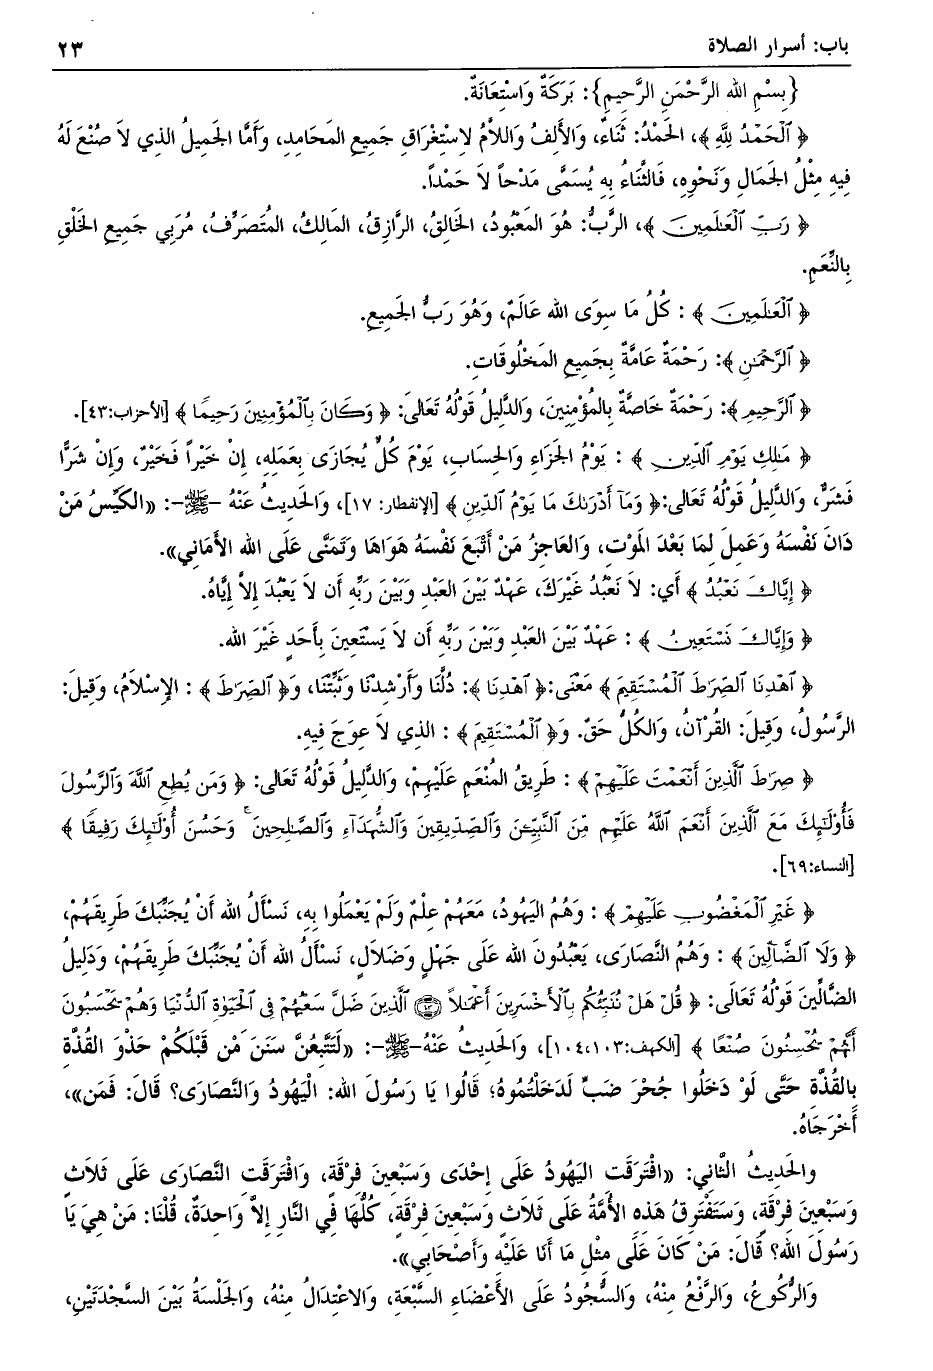 باب: أسرار الصلاة
٢٣
{بِسْمِ الله الرَّحْمَنِ الرَّحِيمِ}: بَرَكَةٌ وَاسْتِعَانَةٌ.
﴿ ٱلْحَمْدُ لِلَّهِ ﴾، الحَمْدُ: ثَنَاءٌ، وَالأَلِفُ وَاللاَّمُ لاِسْتِغْرَاقِ جَمِيعِ المَحَامِدِ، وَأَمَّا الجَمِيلُ الذِي لاَ صُنْعَ لَهُ
فِيهِ مِثْلُ الجَمَالِ وَنَحْوِهِ، فَالثَّنَاءُ بِهِ يُسَمَّى مَدْحاً لاَ حَمْداً.
﴿ رَبِّ ٱلْعَـٰلَمِينَ ﴾، الرَّبُّ: هُوَ المَعْبُودُ، الخَالِقُ، الرَّازِقُ، المَالِكُ، المُتَصَرِّفُ، مُرَبِّي جَمِيعِ الخَلْقِ
بِالنِّعَمِ.
﴿ ٱلْعَـٰلَمِينَ ﴾ : كُلُّ مَا سِوَى الله عَالَمٌ، وَهُوَ رَبُّ الجَمِيعِ.
﴿ ٱلرَّحْمَـٰنِ ﴾: رَحْمَةٌ عَامَّةٌ بِجَمِيعِ المَخْلُوقَاتِ.
﴿ ٱلرَّحِيمِ ﴾: رَحْمَةٌ خَاصَّةٌ بِالمُؤْمِنِينَ، وَالدَّلِيلُ قَوْلُهُ تَعَالَى: ﴿ وَكَانَ بِٱلْمُؤْمِنِينَ رَحِيمًا ﴾ [الأحزاب:٤٣].
﴿ مَـٰلِكِ يَوْمِ ٱلدِّينِ ﴾ : يَوْمُ الجَزَاءِ وَالحِسَابِ، يَوْمَ كُلٌّ يُجَازَى بِعَمَلِهِ، إِنْ خَيْراً فَخَيْرٌ، وَإِنْ شَرًّا
فَشَرٌّ، وَالدَّلِيلُ قَوْلُهُ تَعَالى:﴿ وَمَآ أَدْرَىٰكَ مَا يَوْمُ ٱلدِّينِ ﴾ [الإنفطار: ١٧]، وَالحَدِيثُ عَنْهُ -ﷺ-: «الكَيِّسُ مَنْ
دَانَ نَفْسَهُ وَعَمِلَ لِمَا بَعْدَ المَوْتِ، وَالعَاجِزُ مَنْ أَتْبَعَ نَفْسَهُ هَوَاهَا وَتَمَنَّى عَلَى الله الأَمَانِي».
﴿ إِيَّاكَ نَعْبُدُ ﴾ أَي: لاَ نَعْبُدُ غَيْرَكَ، عَهْدٌ بَيْنَ العَبْدِ وَبَيْنَ رَبِّهِ أَن لاَ يَعْبُدَ إِلاَّ إِيَّاهُ.
﴿ وَإِيَّاكَ نَسْتَعِينُ ﴾ : عَهْدٌ بَيْنَ العَبْدِ وَبَيْنَ رَبِّهِ أَن لاَ يَسْتَعِينَ بِأَحَدٍ غَيْرَ الله.
﴿ ٱهْدِنَا ٱلصِّرَٰطَ ٱلْمُسْتَقِيمَ ﴾ مَعْنَى:﴿ ٱهْدِنَا ﴾: دُلَّنَا وَأَرْشِدْنَا وَثَبِّتْنَا، وَ﴿ ٱلصِّرَٰطَ ﴾ : الإِسْلاَمُ، وَقِيلَ:
الرَّسُولُ، وَقِيلَ: القُرْآنُ، وَالكُلُّ حَقٌّ. وَ﴿ ٱلْمُسْتَقِيمَ ﴾ : الذِي لاَ عِوَجَ فِيهِ.
﴿ صِرَٰطَ ٱلَّذِينَ أَنْعَمْتَ عَلَيْهِمْ ﴾ : طَرِيقُ المُنْعَمِ عَلَيْهِمْ، وَالدَّلِيلُ قَوْلُهُ تَعَالَى: ﴿ وَمَن يُطِعِ ٱللَّهَ وَٱلرَّسُولَ
فَأُو۟لَـٰٓئِكَ مَعَ ٱلَّذِينَ أَنْعَمَ ٱللَّهُ عَلَيْهِم مِّنَ ٱلنَّبِيِّـۧنَ وَٱلصِّدِّيقِينَ وَٱلشُّهَدَآءِ وَٱلصَّـٰلِحِينَ ۚ وَحَسُنَ أُو۟لَـٰٓئِكَ رَفِيقًا ﴾
[النساء:٦٩].
﴿ غَيْرِ ٱلْمَغْضُوبِ عَلَيْهِمْ ﴾ : وَهُمُ اليَهُودُ، مَعَهُمْ عِلْمٌ وَلَمْ يَعْمَلُوا بِهِ، نَسْأَلُ الله أَنْ يُجَنِّبَكَ طَرِيقَهُمْ،
﴿ وَلَا ٱلضَّآلِّينَ ﴾ : وَهُمُ النَّصَارَى، يَعْبُدُونَ الله عَلَى جَهْلٍ وَضَلاَلٍ، نَسْأَلُ الله أَنْ يُجَنِّبَكَ طَرِيقَهُمْ، وَدَلِيلُ
الضَّالِّينَ قَوْلُهُ تَعَالَى: ﴿ قُلْ هَلْ نُنَبِّئُكُم بِٱلْأَخْسَرِينَ أَعْمَـٰلاً ۝١٠٣ ٱلَّذِينَ ضَلَّ سَعْيُهُمْ فِى ٱلْحَيَوٰةِ ٱلدُّنْيَا وَهُمْ يَحْسَبُونَ
أَنَّهُمْ يُحْسِنُونَ صُنْعًا ﴾ [الكهف:١٠٤،١٠٣]، وَالحَدِيثُ عَنْهُ-ﷺ-: «لَتَتَّبِعُنَّ سَنَنَ مَن قَبْلَكُمْ حَذْوَ القُذَّةِ
بِالقُذَّةِ حَتَّى لَوْ دَخَلُوا جُحْرَ ضَبٍّ لَدَخَلْتُمُوهُ؛ قَالُوا يَا رَسُولَ الله: الْيَهُودُ وَالنَّصَارَى؟ قَالَ: فَمَن»،
أَخْرَجَاهُ.
وَالحَدِيثُ الثَّانِي: «افْتَرَقَت اليَهُودُ عَلَى إِحْدَى وَسَبْعِينَ فِرْقَةٍ، وَافْتَرَقَت النَّصَارَى عَلَى ثَلاَثٍ
وَسَبْعِينَ فِرْقَةٍ، وَسَتَفْتَرِقُ هَذِهِ الأُمَّةُ عَلَى ثَلاَثٍ وَسَبْعِينَ فِرْقَةٍ، كُلُّهَا فِي النَّارِ إِلاَّ وَاحِدَةٌ، قُلْنَا: مَنْ هِيَ يَا
رَسُولَ الله؟ قَالَ: مَنْ كَانَ عَلَى مِثْلِ مَا أَنَا عَلَيْهِ وَأَصْحَابِي».
وَالرُّكُوعُ، وَالرَّفْعُ مِنْهُ، وَالسُّجُودُ عَلَى الأَعْضَاءِ السَّبْعَةِ، وَالاعْتِدَالُ مِنْهُ، وَالجَلْسَةُ بَيْنَ السَّجْدَتَيْنِ،